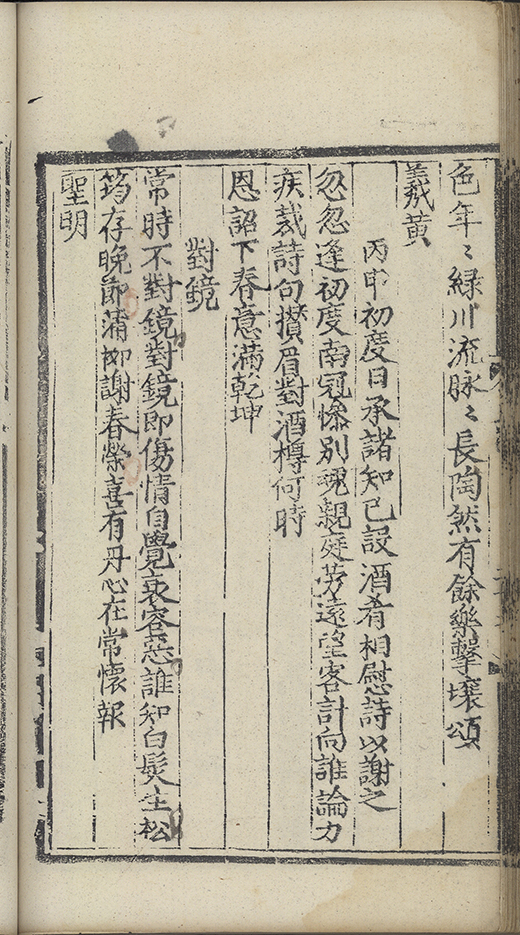 色年〻緑川流脉〻長陶然有餘樂擊壤頌
羲黄
丙申初度日承諸知己設酒肴相慰詩以謝之
忽忽逢初度南冠慘别魂親庭勞遠望客計向誰論力
疾裁詩句攢眉對酒樽何時
恩詔下春意滿乾坤
對鏡
常時不對鏡對鏡即傷情自覺衰容惡誰知白髮生松
筠存晩節蒲柳謝春榮喜有丹心在常懷報
聖明